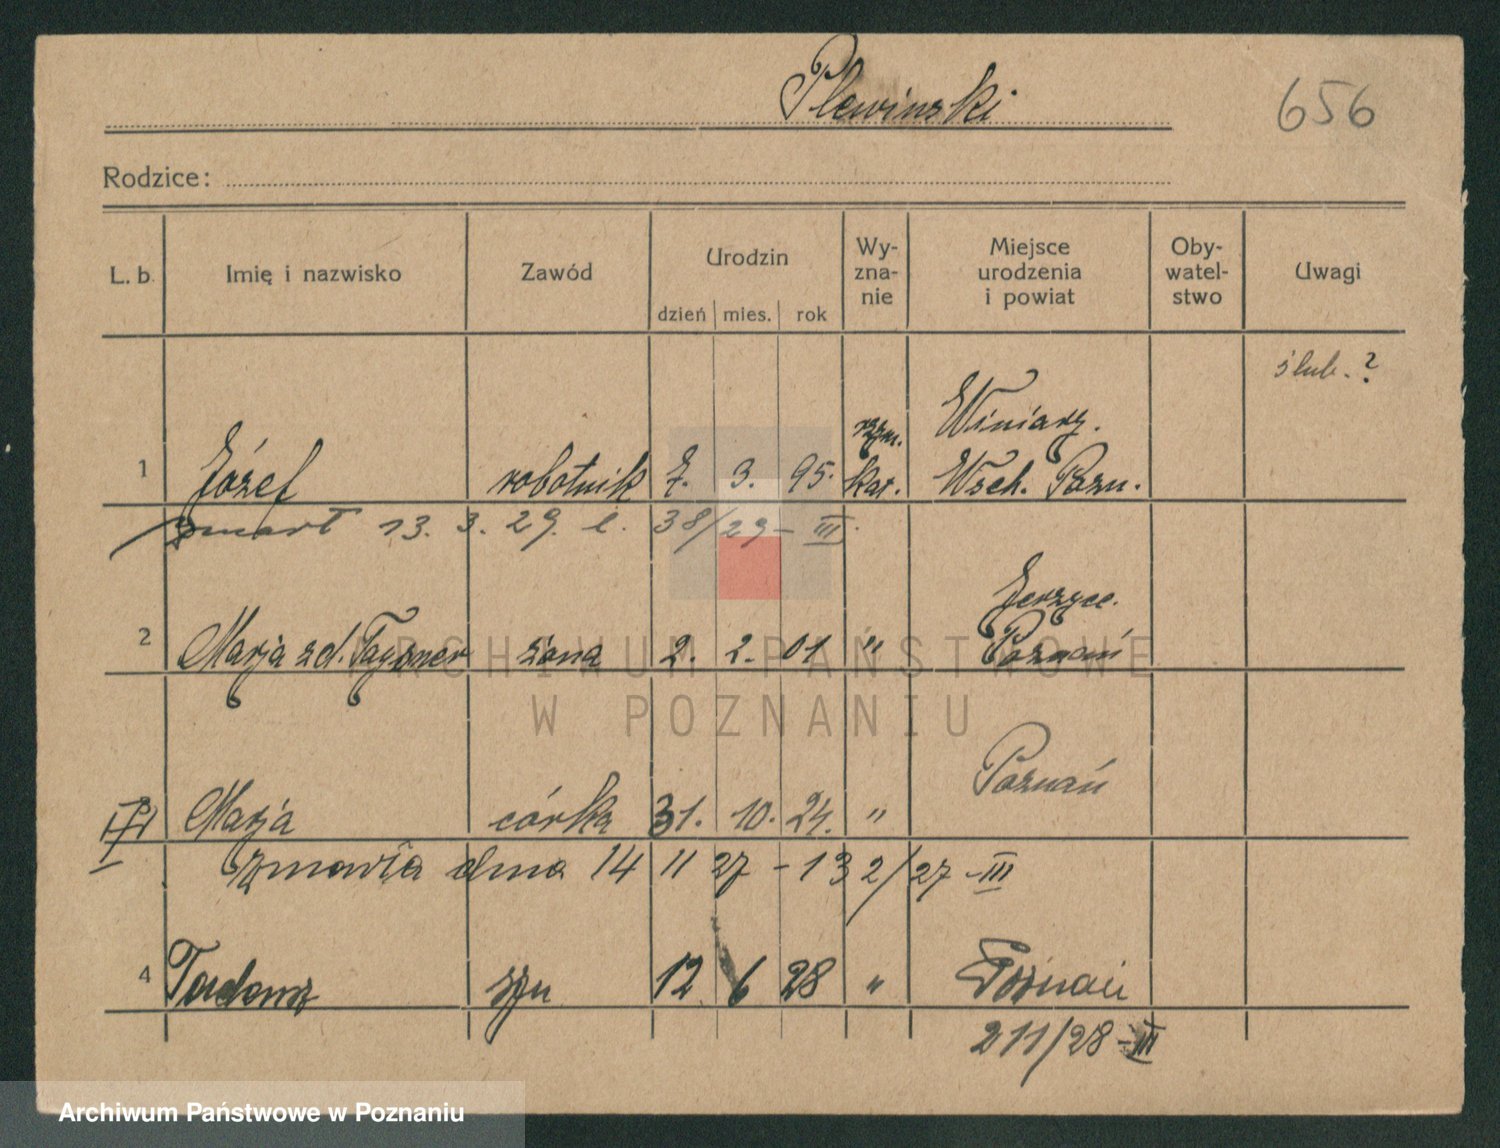 Plewinski 656
Rodzice:
L. b. Imię i nazwisko Zawód Urodzin dzień mies. rok Wy- zna- nie Miejsce urodzenia i powiat Oby- watel- stwo Uwagi
ślub. ?
rzym. Winiary.
1 Józef robotnik 7. 3. 95. kat. Wsch. Pozn.
zmarł 13. 3. 29. l. 38/29 - III.
Jerzyce.
2 Marja zd. żona 2. 2. 01 " Poznań
ARCHIWUM PAŃSTWOWE
W POZNANIU
Poznań
Marja córka 31. 10. 24. "
zmarła dnia 14 11 27 - 132/27 - III
4 Tadeusz syn 12 6 28 " Poznań
211/28 - III
Archiwum Państwowe w Poznaniu